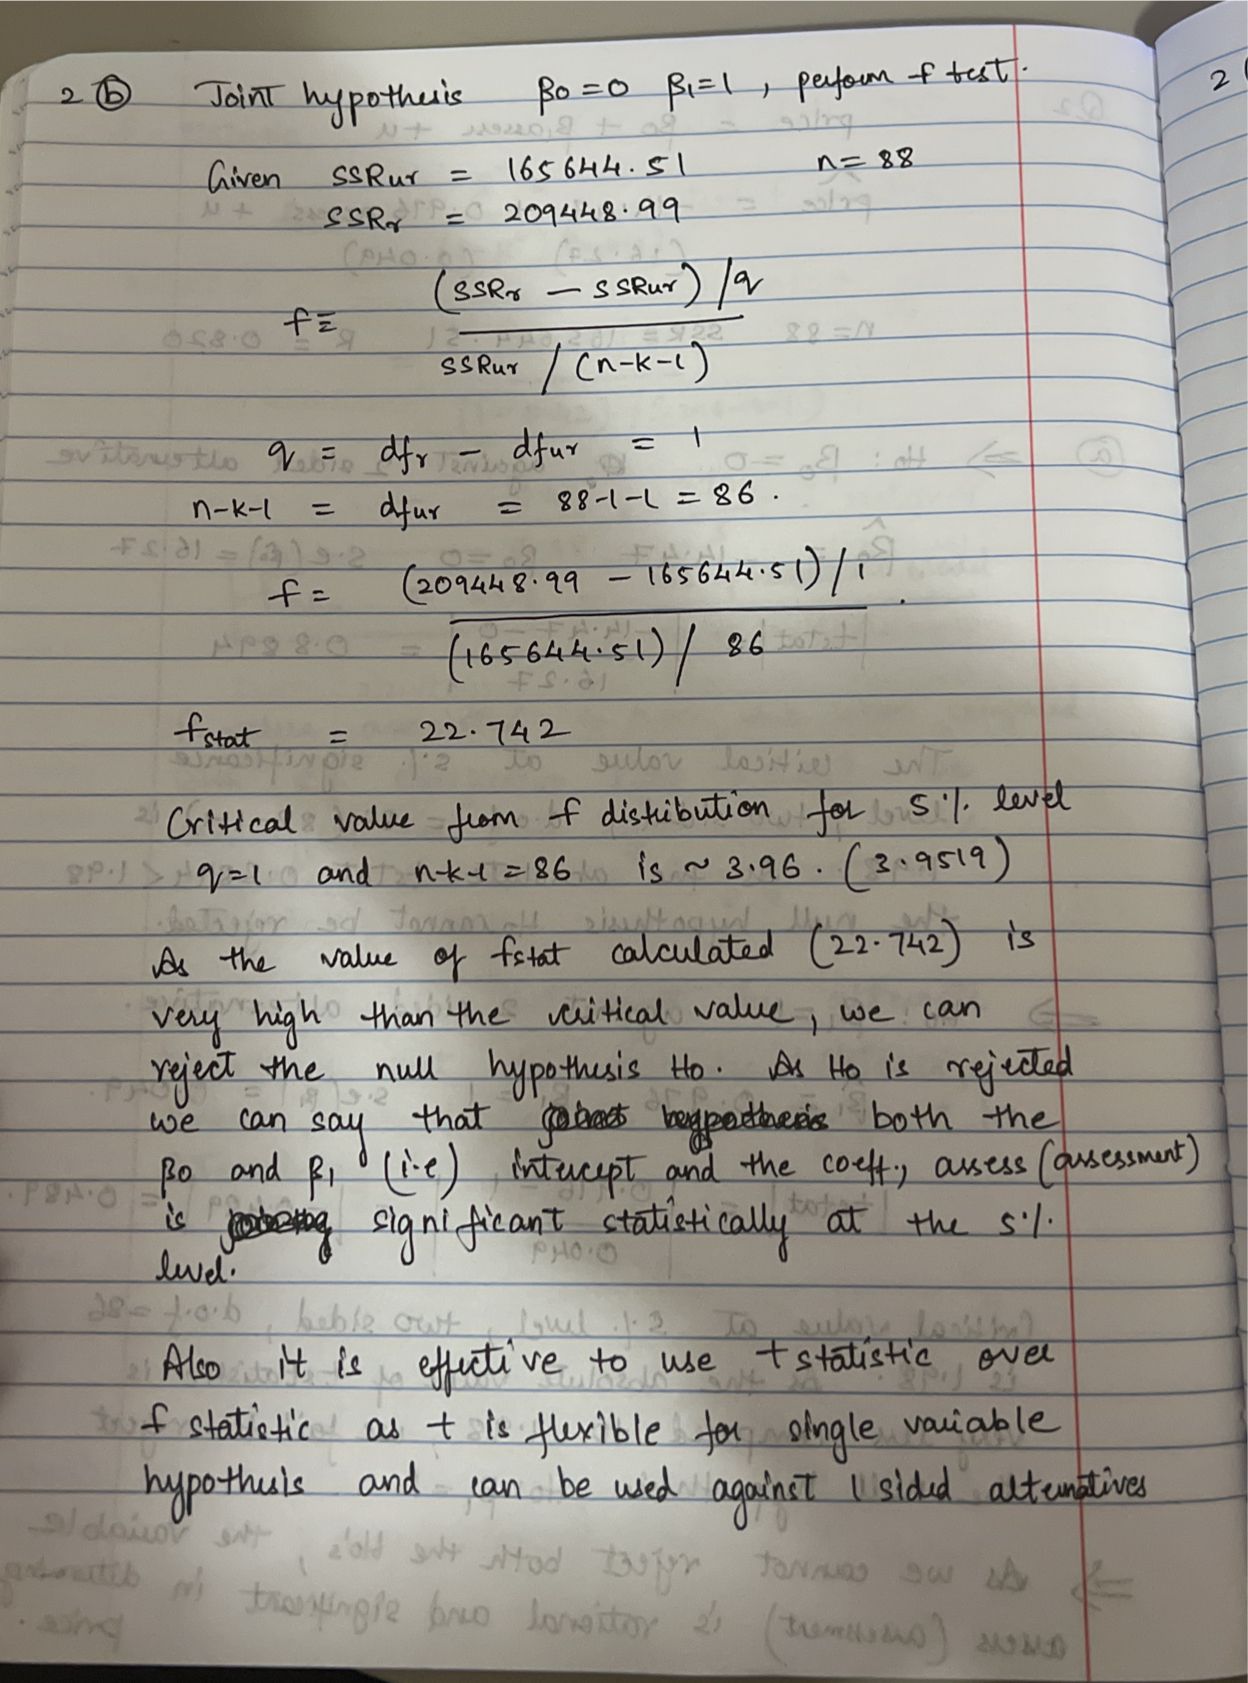 2 (b) Joint hypothesis β0 = 0 β1 = 1 , perform f test.
Given SSRur = 165644.51 n = 88
SSRr = 209448.99
f = (SSRr − SSRur) /q
SSRur / (n-k-1)
q = dfr − dfur = 1
n-k-1 = dfur = 88-1-1 = 86 .
f = (209448.99 − 165644.51) / 1
(165644.51) / 86
fstat = 22.742
Critical value from f distribution for 5 % level
q=1 and n-k-1 = 86 is ~ 3.96 . (3.9519)
As the value of fstat calculated (22.742) is
very high than the critical value, we can
reject the null hypothesis Ho. As Ho is rejected
we can say that both the
β0 and β1 (i.e) intercept and the coeff., assess (assessment)
is significant statistically at the 5%
level.
Also it is effective to use t statistic over
f statistic as t is flexible for single variable
hypothesis and can be used against 1 sided alternatives
2